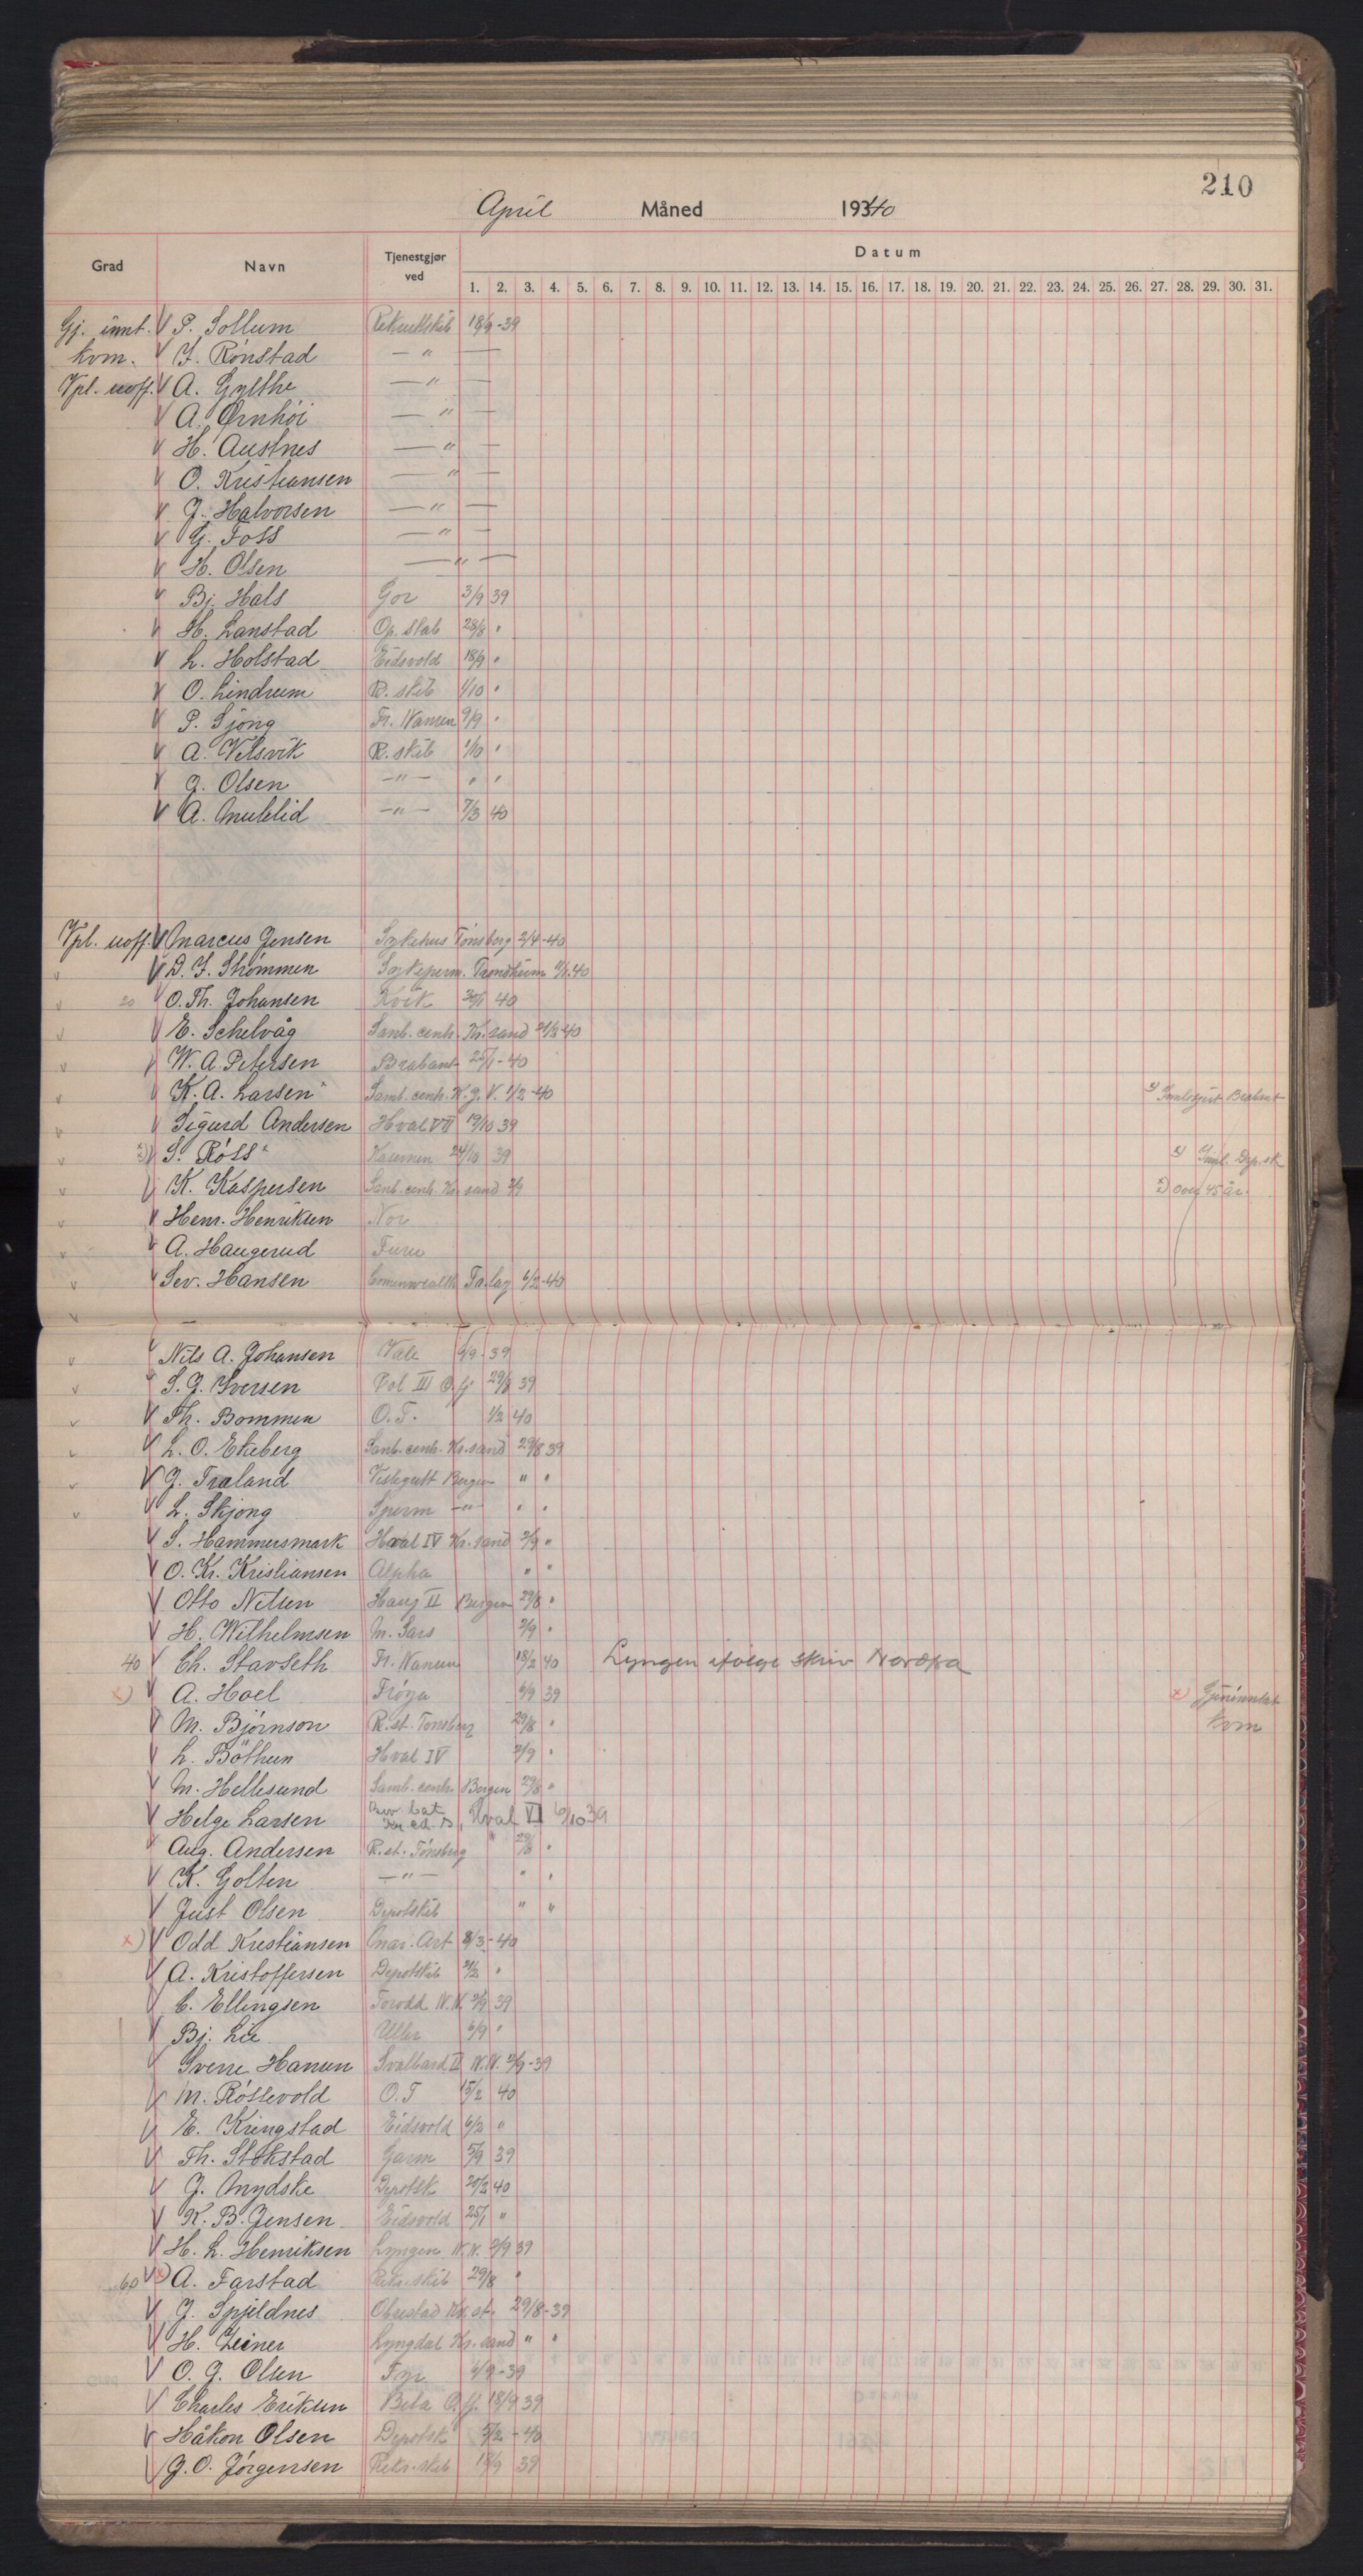 210
April Måned 193440
Grad Navn Tjenestgjør ved Datum
1. 2. 3. 4. 5. 6. 7. 8. 9. 10. 11. 12. 13. 14. 15. 16. 17. 18. 19. 20. 21. 22. 23. 24. 25. 26. 27. 28. 29. 30. 31.
Gj. innt. P. Sollum 18/9-39
kvm. J. Rønstad — " —
Vpl. uoff. A. Gylthe — " —
A. Ørnhøi — " —
H. Austnes — " —
O. Kristiansen — " —
J. Halvorsen — " —
G. Foss — " —
H. Olsen — " —
Bj. Hals Gor 3/9 39
H. Lanstad Op. stab 28/8 "
L. Holstad Eidsvold 18/9 "
O. Lindrum R. skib 1/10 "
P. Sjong Fr. Nansen 9/9 "
A. Velsvik R. skib 1/10 "
G. Olsen —"— " "
A. Muldlid —"— 7/3 40
Vpl. uoff. Marcus Jensen Sykehus Tønsberg 2/4-40
D. J. Strømmen Sykeperm. Trondheim 40
20 O. Th. Johansen Kvik 30/1 40
E. Schelvåg Samb. centr. Kr.sand 40
W. A. Petersen Brabant 25/1-40
K. A. Larsen Samb. centr. K. J. V. 1/2-40 Brabant
Sigurd Andersen Hval VII 19/10 39
S. Röss 24/10 39 Dep.sk
K. Kaspersen Samb. centr. Kr. sand 2/9 over 45 år.
Henr. Henriksen Nor
A. Haugerud Furu
Sev. Hansen 6/2-40
Nils A. Johansen Vale 6/9-39
S. J. Iversen Pol III O.fj. 29/8 39
Th. Bommen O.T. 1/2 40
L. O. Ekeberg Samb. centr. Kr.sand 29/8 39
J. Træland Bergen " "
L. Skjong Sperm —"— " "
S. Hammersmark Hval IV Kr.sand 2/9 "
O. Kr. Kristiansen Alpha " "
Otto Nilsen Haug II Bergen 29/8 "
H. Wilhelmsen M. Sars 2/9 "
40 Ch. Stavseth Fr. Nansen 18/2 40 Lyngen ifølge skriv
x) A. Hoel Frøya 6/9 39 x)
M. Bjørnson R.st. Tønsberg 29/8 " kvm
L. Böthun Hval IV 2/9 "
M. Hellesund Samb. centr. Bergen 29/8 "
Helge Larsen Hval VI 6/10 39
Aug. Andersen R.st. Tønsberg 29/8 "
K. Golten —"— " "
Just Olsen Depotskib " "
x) Odd Kristiansen Mar. Art 8/3-40
A. Kristoffersen Depotskib "
C. Ellingsen Torodd N.N. 2/9 39
Bj. Lie Uller 6/9 "
Sverre Hansen Svalbard II N.N. 2/9-39
M. Røssevold O.T 15/2 40
E. Kringstad Eidsvold 6/2 "
Th. Stokstad Garm 5/9 39
J. Mydske Depotsk 20/2 40
K. B. Jensen Eidsvold 25/1 "
H. L. Henriksen Lyngen N.N. 2/9 39
60 x) A. Farstad Rekr.skib 29/8 "
J. Spjeldnes Obrestad Kr. st. 29/8-39
H. Zeiner Lyngdal Kr.sand " "
O. G. Olsen Tyr 6/9-39
Charles Eriksen Beta O.fj. 18/9 39
Håkon Olsen Depotsk 5/2-40
G. O. Jørgensen Rekr.skib 18/9 39